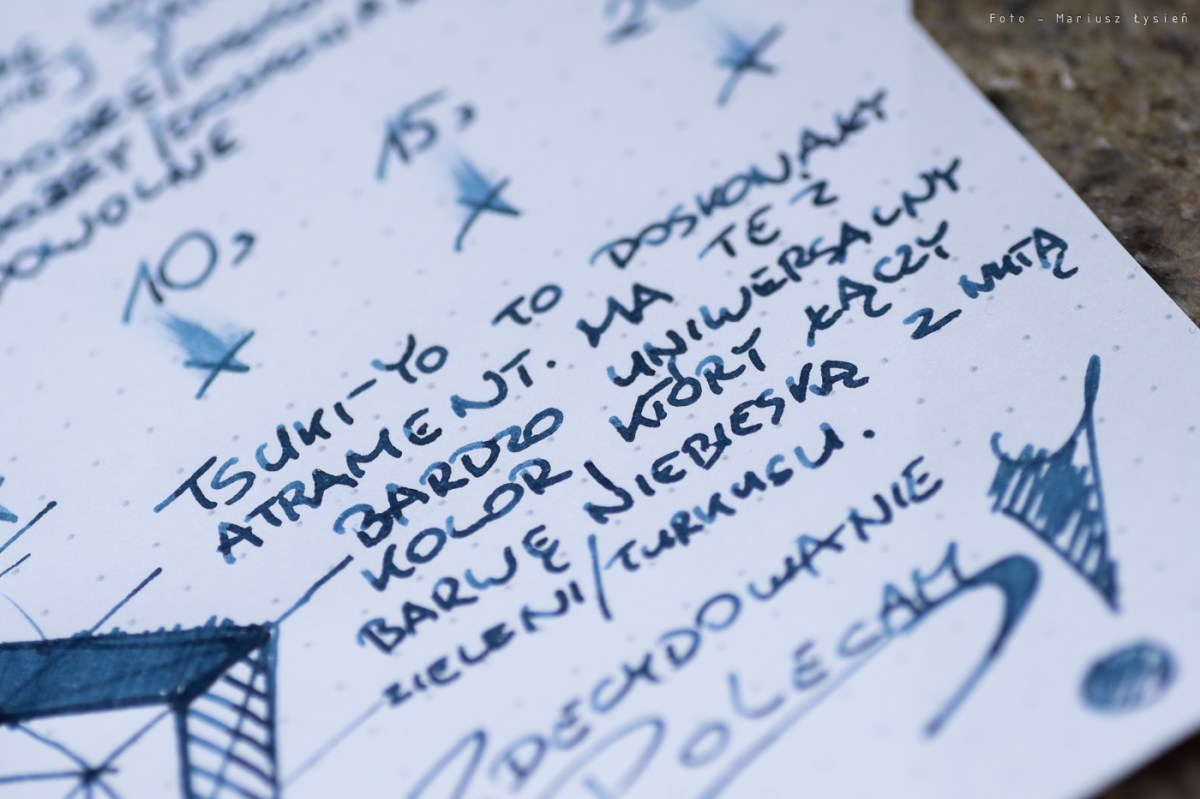 Foto - Mariusz Łysień
DOWOLNE
10s
15s
TSUKI-YO TO DOSKONAŁY
ATRAMENT. MA TE Z
BARDZO UNIWERSALNY
KOLOR KTÓRY ŁĄCZY
BARWĘ NIEBIESKĄ Z NUTĄ
ZIELENI/TURKUSU.
ZDECYDOWANIE
POLECAM!